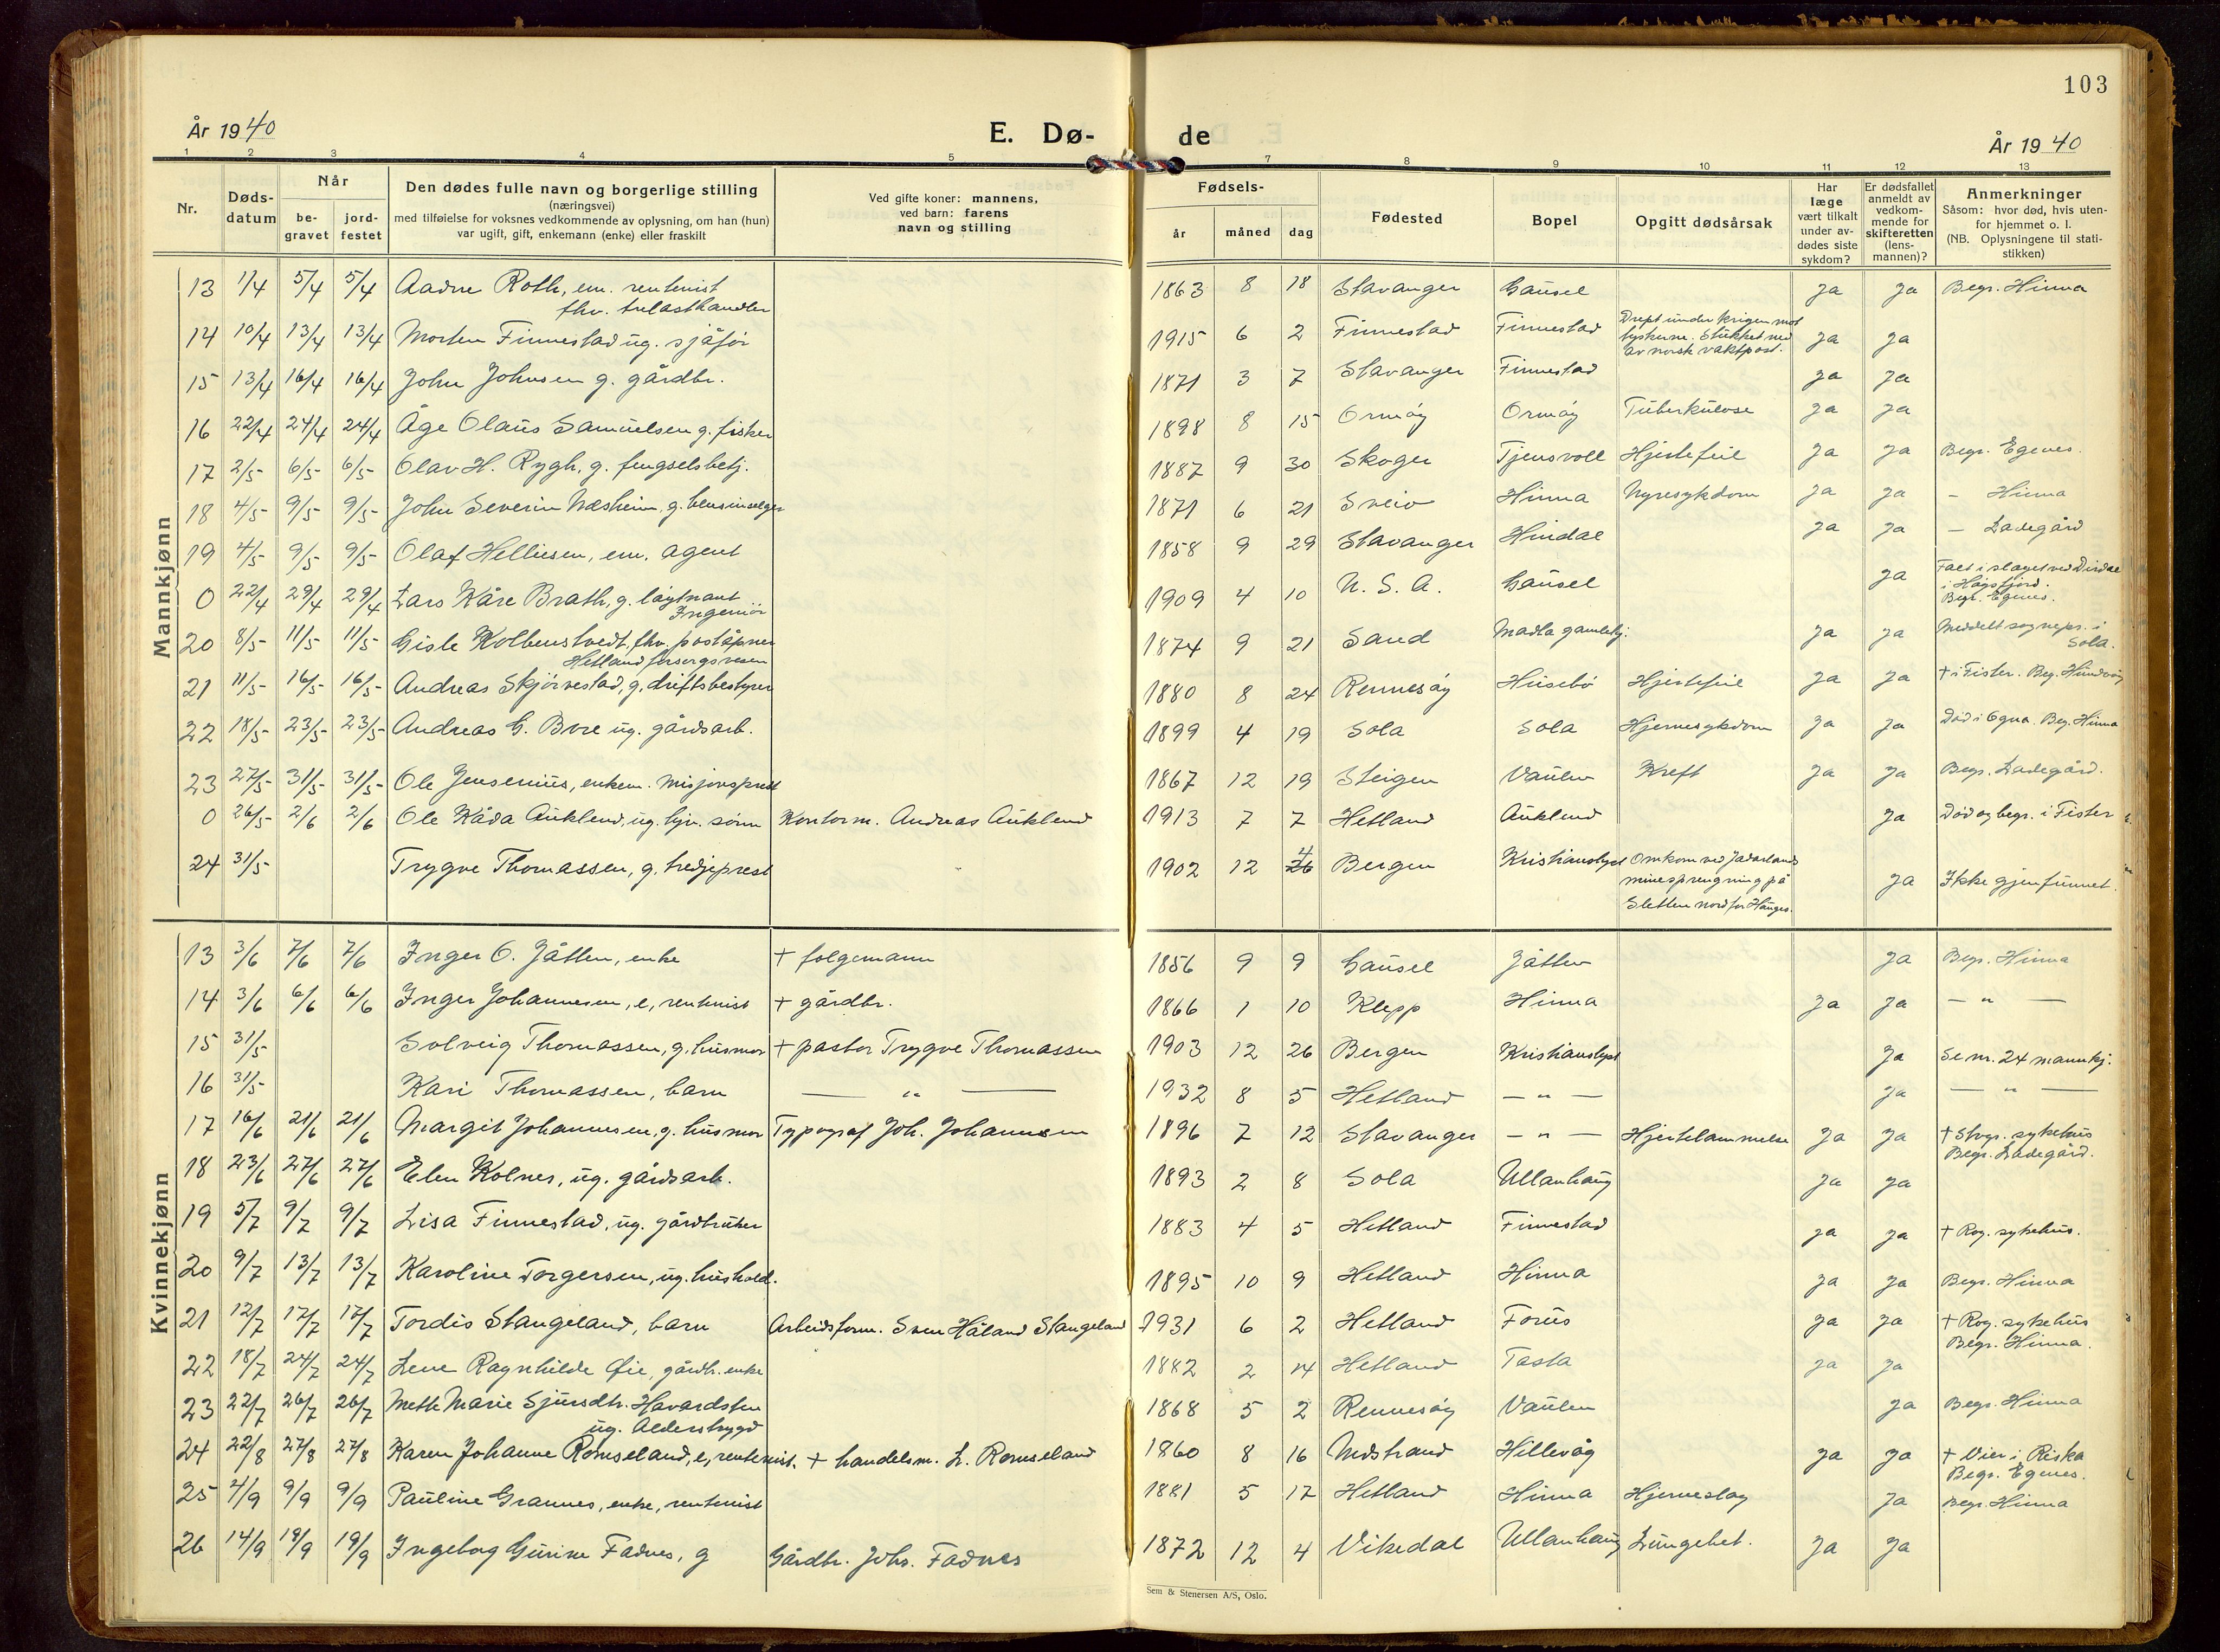 103
År 1940
E. Dø-
de
År 1940
1 2 3 4 5 7 8 9 10 11 12 13
Nr.
Døds-
datum
Når
be-
gravet
jord-
festet
Den dødes fulle navn og borgerlige stilling
(næringsvei)
med tilføielse for voksnes vedkommende av oplysning, om han (hun)
var ugift, gift, enkemann (enke) eller fraskilt
Ved gifte koner: mannens,
ved barn: farens
navn og stilling
Fødsels-
år måned dag
Fødested
Bopel
Opgitt dødsårsak
Har
læge
vært tilkalt
under av-
dødes siste
sykdom?
Er dødsfallet
anmeldt av
vedkom-
mende for
skifteretten
(lens-
mannen)?
Anmerkninger
Såsom: hvor død, hvis uten-
for hjemmet o. l.
(NB. Oplysningene til stati-
stikken)
Mannkjønn
13 1/4 5/4 5/4 Aadne Roth, em. rentenist 1863 8 18 Stavanger Gausel ja ja Begr. Hinna
fhv. trelasthandler
14 10/4 13/4 13/4 Morten Finnestad ug. sjåfør 1915 6 2 Finnestad Finnestad Drept under krigen mot ja ja
tyskerne. Stukket ned
av norsk vaktpost.
15 13/4 16/4 16/4 John Johnsen g. gårdbr. 1871 3 7 Stavanger Finnestad ja ja
16 22/4 24/4 24/4 Åge Olaus Samuelsen g. fisker 1898 8 15 Ormøy Ormøy Tuberkulose ja ja
17 2/5 6/5 6/5 Olav H. Rygh, g. fengselsbetj. 1887 9 30 Skoger Tjensvoll Hjertefeil ja ja Begr. Egenes.
18 4/5 9/5 9/5 John Severin Næsheim, g. bensinselger 1871 6 21 Sveio Hinna Nyresykdom ja ja – Hinna
19 4/5 9/5 9/5 Olaf Helliesen, em. agent 1858 9 29 Stavanger Hindal ja ja – Ladegård
0 22/4 29/4 29/4 Lars Kåre Brath, g. løytnant 1909 4 10 U. S. A. Gausel ja Falt i slaget ved Dirdal
Ingeniør i Høgsfjord.
Begr. Egenes.
20 8/5 11/5 11/5 Gisle Kolbenstvedt, fhv. poståpner 1874 9 21 Sand Madla gamlehj. ja ja Meddelt sognepr. i
Hetland forsorgsvesen Sola.
21 11/5 16/5 16/5 Andreas Skjørvestad, g. driftsbestyrer 1880 8 24 Rennesøy Husebø Hjertefeil ja ja + i Fister. Beg. Hundvåg
22 18/5 23/5 23/5 Andreas G. Bore ug. gårdsarb. 1899 4 19 Sola Sola Hjernesykdom ja ja Død i Ogna. Beg. Hinna
23 27/5 31/5 31/5 Ole Jensenius, enkem. misjonsprest 1867 12 19 Steigen Vaulen Kreft ja ja Begr. Ladegård.
0 26/5 2/6 2/6 Ole Kåda Aukland, ug. hjv. sønn Kontorm. Andreas Aukland 1913 7 7 Hetland Aukland ja Død og begr. i Fister
24 31/5 Trygve Thomassen, g. tredjeprest 1902 12 4 26 Bergen Kristianslyst Omkom ved Jadarlands ja Ikke gjenfunnet.
minesprengning på
Sletten nord for Hauges.
Kvinnekjønn
13 3/6 7/6 7/6 Inger O. Jåtten, enke + følgemann 1856 9 9 Gausel Jåtten ja Begr. Hinna
14 3/6 6/6 6/6 Inger Johannesen, e, rentenist + gårdbr. 1866 1 10 Klepp Hinna ja ja – " –
15 31/5 Solveig Thomassen, g. husmor + pastor Trygve Thomassen 1903 12 26 Bergen Kristianslyst ja Se nr. 24 mannkj.
16 31/5 Kari Thomassen, barn – " – 1932 8 5 Hetland – " – ja – " –
17 16/6 21/6 21/6 Margit Johannesen, g. husmor Typograf Joh. Johannesen 1896 7 12 Stavanger – " – Hjertelammelse ja ja + Stvgr. sykehus
Begr. Ladegård.
18 23/6 27/6 27/6 Elen Kolnes, ug. gårdsarb. 1893 2 8 Sola Ullanhaug ja ja
19 5/7 9/7 9/7 Lisa Finnestad, ug. gårdbruker 1883 4 5 Hetland Finnestad ja ja + Rog. sykehus.
20 9/7 13/7 13/7 Karoline Torgersen, ug. hushold. 1895 10 9 Hetland Hinna ja ja Begr. Hinna
21 12/7 17/7 17/7 Tordis Stangeland, barn Arbeidsform. Sven Håland Stangeland 1931 6 2 Hetland Forus ja ja + Rog. sykehus
Begr. Hinna.
22 18/7 24/7 24/7 Lene Ragnhilde Øie, gårdb. enke 1882 2 14 Hetland Tasta ja ja
23 22/7 26/7 26/7 Mette Marie Sjursdtr. Havardsten 1868 5 2 Rennesøy Vaulen ja Begr. Hinna
ug. Alderstrygd
24 22/8 27/8 27/8 Karen Johanne Romseland, e, rentenist. + handelsm. L. Romseland 1860 8 16 Nedstrand Hillevåg ja ja + Vier i Riska
Begr. Egenes.
25 4/9 9/9 9/9 Pauline Grannes, enke, rentenist 1881 5 17 Hetland Hinna Hjerneslag ja Begr. Hinna
26 14/9 19/9 19/9 Ingeborg Gurine Fadnes, g Gårdbr. Johs. Fadnes 1872 12 4 Vikedal Ullanhaug Lungebet. ja ja
Sem & Stenersen A/S, Oslo.